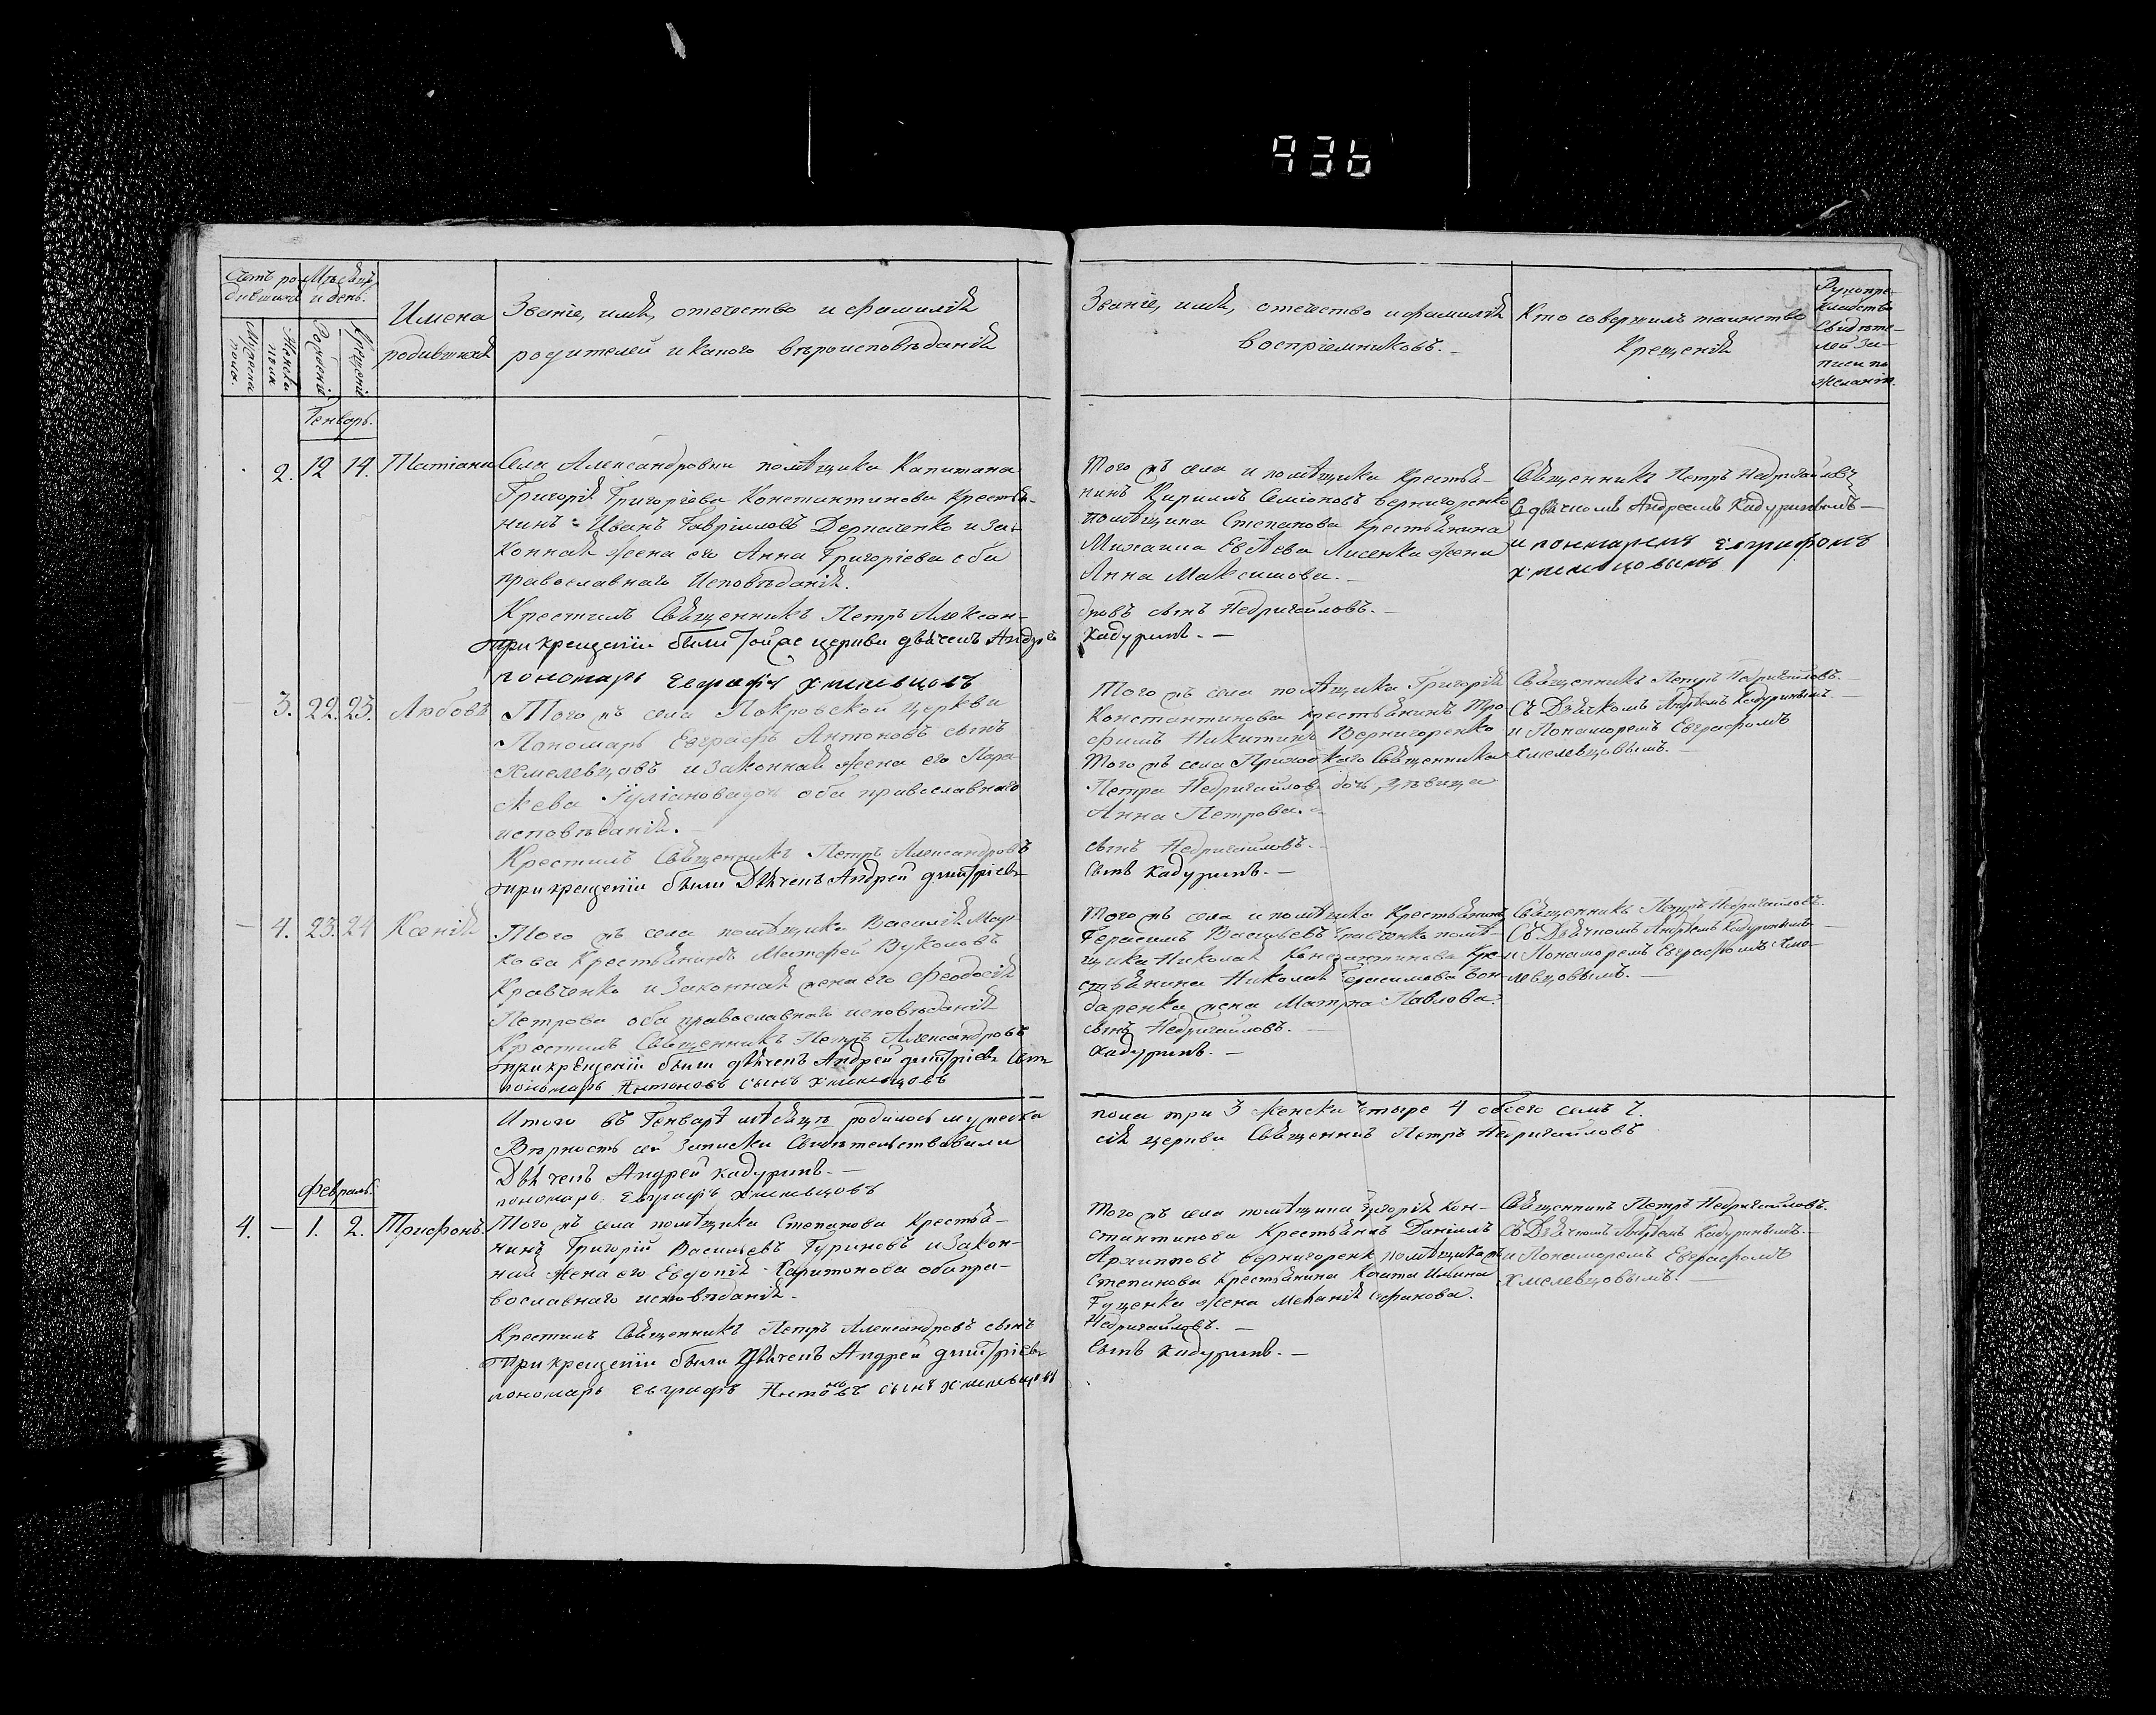 936
Счетъ родившихся
Мѣсяцъ и день.
Мужеска пола.
Женска пола
Рожденія
Крещенія
Имена
родившихся
Званіе, имя, отечество и фамилія
родителей и какого вѣроисповѣданія
Званіе, имя, отечество и фамилія
воспріемниковъ.
Кто совершилъ таинство
Крещенія
Рукопри-
кладство
свидѣте-
лей за-
писи по
желанію.
Генварь.
2. 12 14. Татіана
Села Александровки помѣщика Капитана
Григорія Григоріева Константинова крестья-
нинъ Иванъ Гавріиловъ Деркаченко и за-
конная жена его Анна Григоріева оба
православнаго исповѣданія.
Крестилъ Священникъ Петръ Алексан-
При крещеніи были тойже церкви дьячекъ Андрей
пономарь Евграфъ Хмелевцовъ
Того жъ села и помѣщика крестья-
нинъ Кирилъ Семіоновъ Вернигоренко
помѣщика Степанова крестьянина
Михаила Лисенка жена
Анна Максимова.
дровъ сынъ Недригайловъ.
Кадуринъ.
Священникъ Петръ Недригайловъ
Съ дьячкомъ Андреемъ Кадуринымъ
и пономаремъ Евграфомъ
Хмелевцовымъ
3. 22. 23. Любовь
Того жъ села Покровской церкви
Пономарь Евграфъ Антоновъ сынъ
Хмелевцовъ и законная жена его Пара-
скева оба православнаго
исповѣданія.
Крестилъ Священникъ Петръ Александровъ
При крещеніи были Дьячекъ Андрей Дмитріевъ
Того жъ села помѣщика Григорія
Константинова крестьянинъ Тро-
фимъ Никитинъ Вернигоренко
Того жъ села Приходскаго Священника
Петра Недригайлова дочь дѣвица
Анна Петрова.
сынъ Недригайловъ.
сынъ Кадуринъ.
Священникъ Петръ Недригайловъ.
Съ Дьячкомъ Андреемъ Кадуринымъ.
и Пономаремъ Евграфомъ
Хмелевцовымъ.
4. 23. 24 Ксенія
Того жъ села помѣщика Василія Мар-
кова крестьянинъ Матфей Вуколовъ
Кравченко и законная жена его Феодосія
Петрова оба православнаго исповѣданія
Крестилъ Священникъ Петръ Александровъ
При крещеніи были дьячекъ Андрей Дмитріевъ сынъ
пономарь Антоновъ сынъ Хмелевцовъ
Того жъ села и помѣщика крестьянинъ
Герасимъ Васильевъ Кравченко помѣ-
щика Николая Константинова кре-
стьянина Николая Герасимова Бон-
даренка жена Матрна Павлова.
сынъ Недригайловъ.
Кадуринъ.
Священникъ Петръ Недригайловъ.
Съ Дьячкомъ Андреемъ Кадуринымъ
и Пономаремъ Евграфомъ Хме-
левцовымъ.
Итого въ Генварѣ мѣсяцѣ родилось мужеска
пола три 3 женска четыре 4 обоего семъ 7.
Вѣрность сей Записки свидѣтельствовали
сія церкви Священникъ Петръ Недригайловъ
Дьячекъ Андрей Кадуринъ.
пономарь Евграфъ Хмелевцовъ
Февраль.
4. 1. 2. Трифонъ.
Того жъ села помѣщика Степанова крестья-
нинъ Григорій Васильевъ Гуриновъ и закон-
ная жена его Евдокія Харитонова оба пра-
вославнаго исповѣданія.
Крестилъ Священникъ Петръ Александровъ сынъ
При крещеніи были дьячекъ Андрей Дмитріевъ
пономарь Евграфъ Антоновъ сынъ Хмелевцовъ
Того жъ села помѣщика Григорія Кон-
стантинова крестьянинъ Даніилъ
Архиповъ Вернигоренко помѣщика
Степанова крестьянина Ильина
Гуценка жена Меланія
Недригайловъ.
сынъ Кадуринъ.
Священникъ Петръ Недригайловъ.
Съ Дьячкомъ Андреемъ Кадуринымъ.
и Пономаремъ Евграфомъ
Хмелевцовымъ.